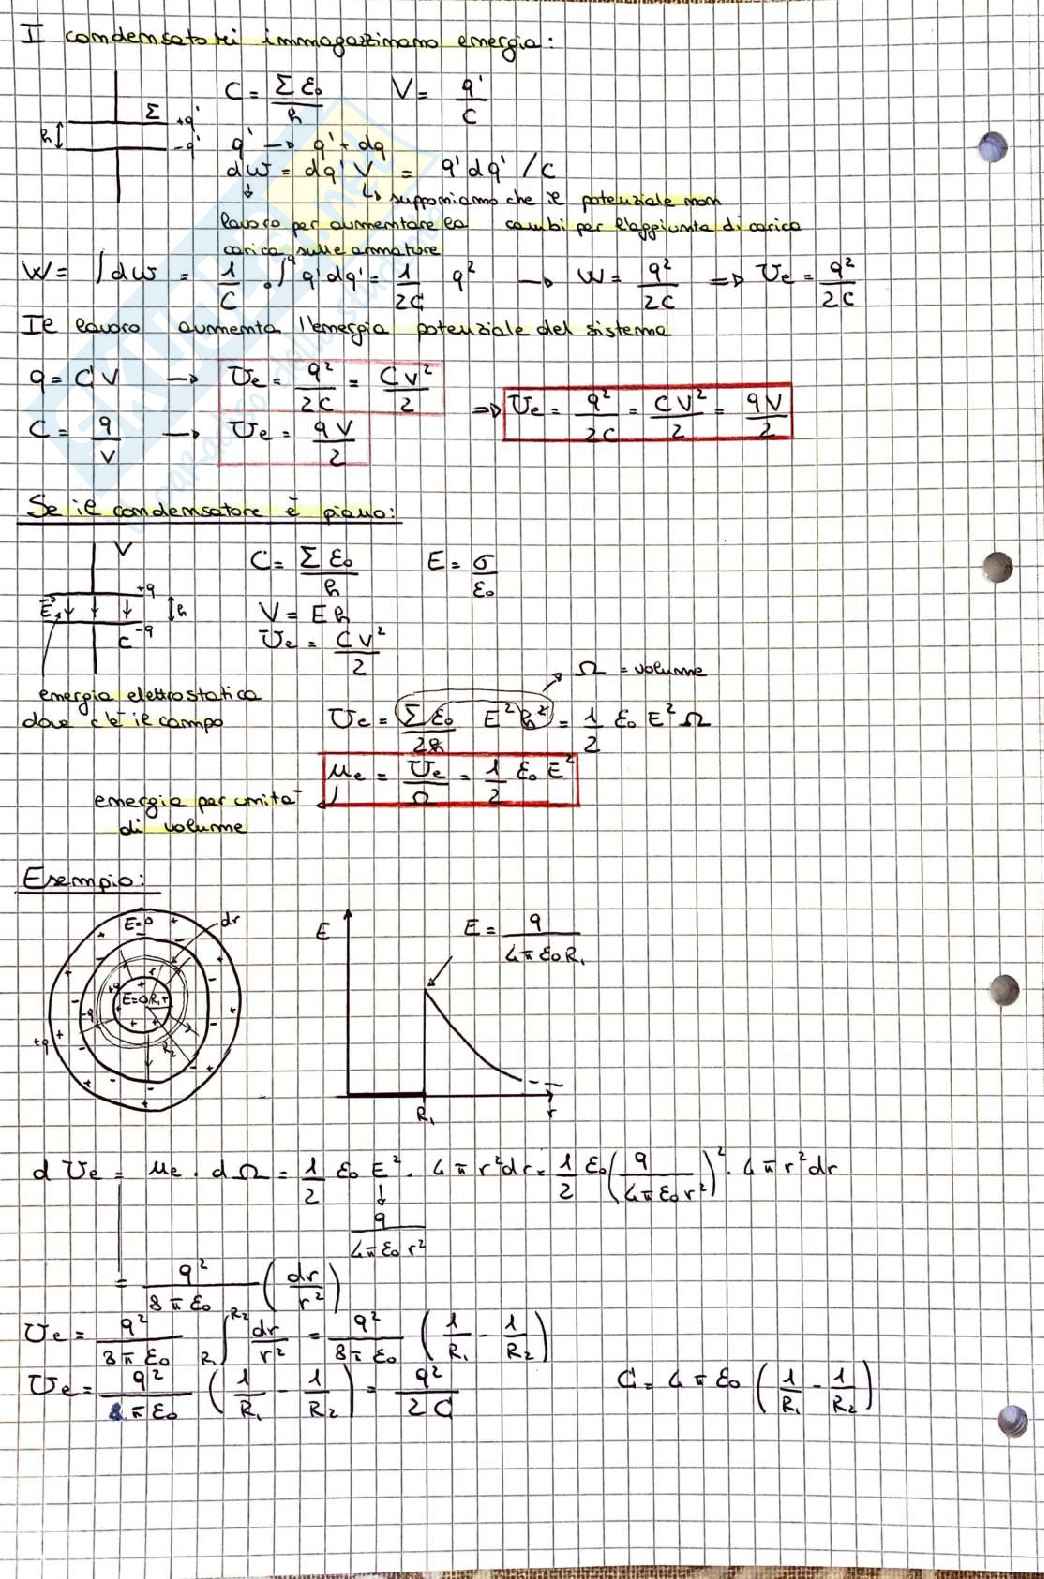 I condensatori immagazzinano energia:
C = Σ ε₀ / h   V = q' / C
Σ +q'
h -q'
q' → q' + dq
dW = dq' V = q' dq' / C
↳ supponiamo che il potenziale non
lavoro per aumentare la cambi per l'aggiunta di carica
carica sulle armature
W = ∫dW = 1/C ₀∫^q q' dq' = 1/2C q² → W = q²/2C ⇒ Ue = q²/2C
Il lavoro aumenta l'energia potenziale del sistema
q = CV → Ue = q²/2C = CV²/2
⇒ Ue = q²/2C = CV²/2 = qV/2
C = q/V → Ue = qV/2
Se il condensatore è piano:
V
C = Σ ε₀ / h   E = σ/ε₀
+q
E h
V = E h
C -q
Ue = CV²/2
Ω = volume
energia elettrostatica
dove c'è il campo
Ue = Σ ε₀ / 2h E² h² = 1/2 ε₀ E² Ω
μe = Ue/Ω = 1/2 ε₀ E²
energia per unità
di volume
Esempio:
E=0 dr
E   E = q / 4π ε₀ R₁
r
+q
E=0 R₁ r
-q
+q
R₂
R₁ r
d Ue = μe · dΩ = 1/2 ε₀ E² · 4π r² dr = 1/2 ε₀ (q / 4π ε₀ r²)² · 4π r² dr
q / 4π ε₀ r²
= q² / 8π ε₀ (dr / r²)
Ue = q² / 8π ε₀ R₁∫^R₂ dr/r² = q² / 8π ε₀ (1/R₁ - 1/R₂)
Ue = q² / 8π ε₀ (1/R₁ - 1/R₂) = q²/2C   C = 4π ε₀ (1/R₁ - 1/R₂)